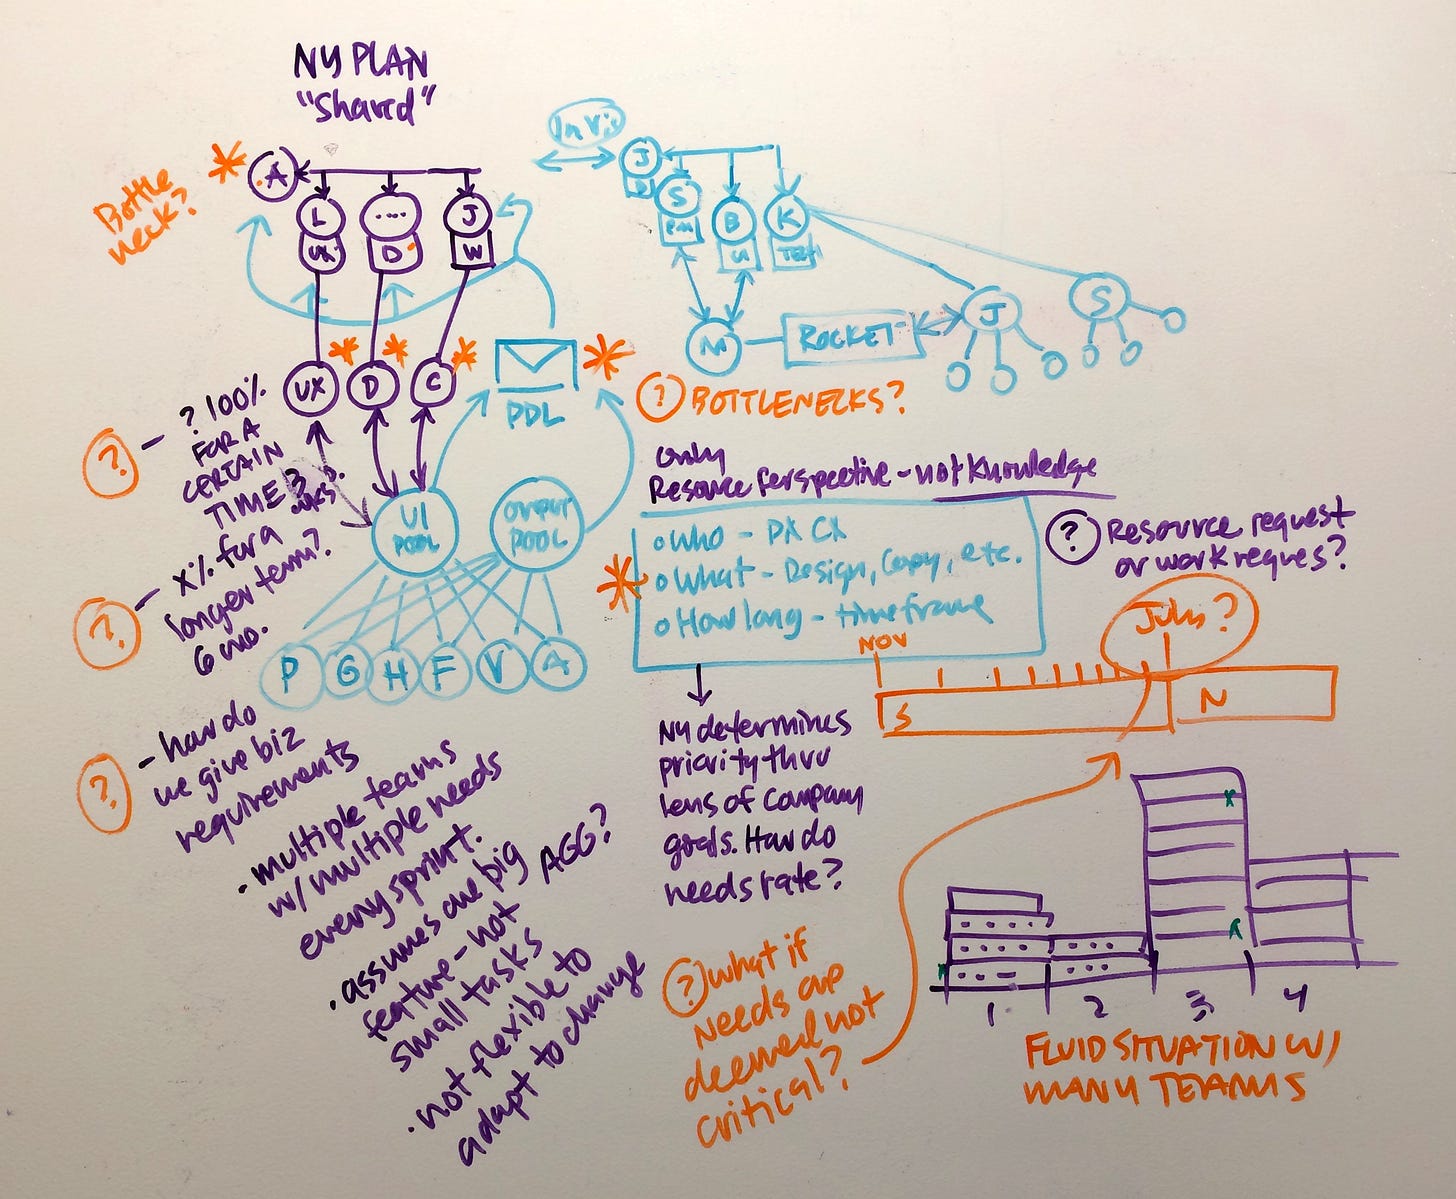 NY PLAN
"Shared"
Bottle
neck?
A
L
UX
....
D
J
W
J
S
PM
B
UI
K
TECH
M
ROCKET
J
S
UX
D
C
PDL
? BOTTLENECKS?
? - ? 100%
FOR A
CERTAIN
TIME 3
wks.
? - X% for a
longer term?
6 mo.
UI
POOL
OUTPUT
POOL
P
G
H
F
V
A
? - how do
we give biz
requirements
. multiple teams
w/ multiple needs
every sprint.
. assumes one big
feature - not
small tasks
AGG?
. not flexible to
adapt to change
only
Resource Perspective - not Knowledge
o Who - PX CX
o What - Design, Copy, etc.
o How long - timeframe
? Resource request
or work reques?
NOV
July?
S
N
NY determines
priority thru
lens of company
goals. How do
needs rate?
? What if
needs are
deemed not
critical?
1
2
3
4
FLUID SITUATION W/
MANY TEAMS